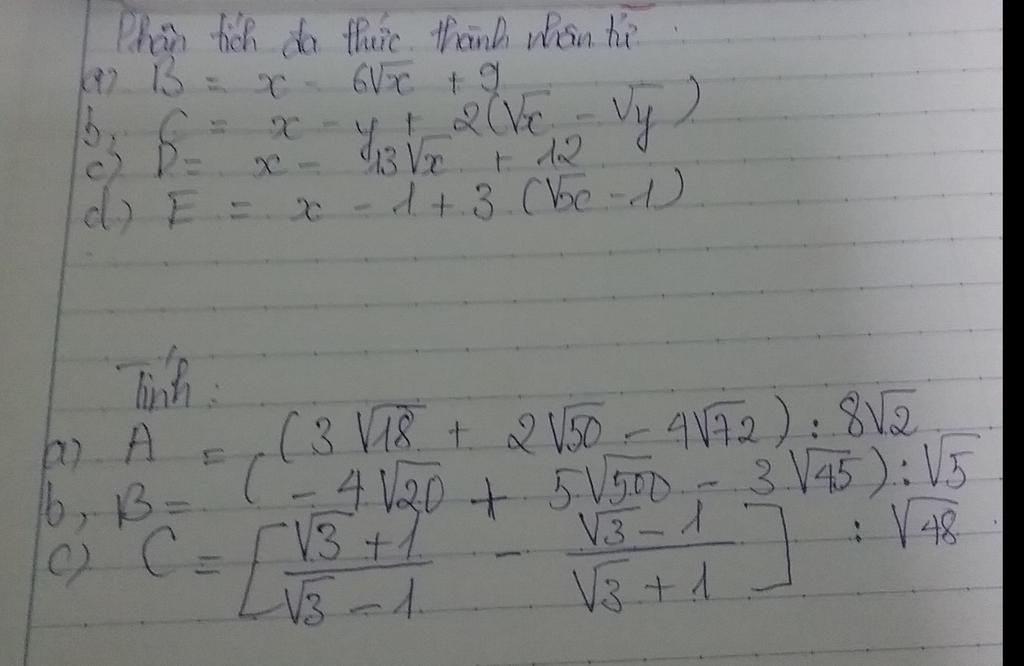 Phân tích đa thức thành nhân tử :
a) B = x - 6√x + 9
b, C = x - y + 2(√x - √y)
c) D = x - 13√x + 12
d) E = x - 1 + 3 (√x - 1)
Tính :
a) A = (3√18 + 2√50 - 4√72) : 8√2
b, B = (-4√20 + 5√500 - 3√45) : √5
c) C = [(√3 + 1)/(√3 - 1) - (√3 - 1)/(√3 + 1)] : √48